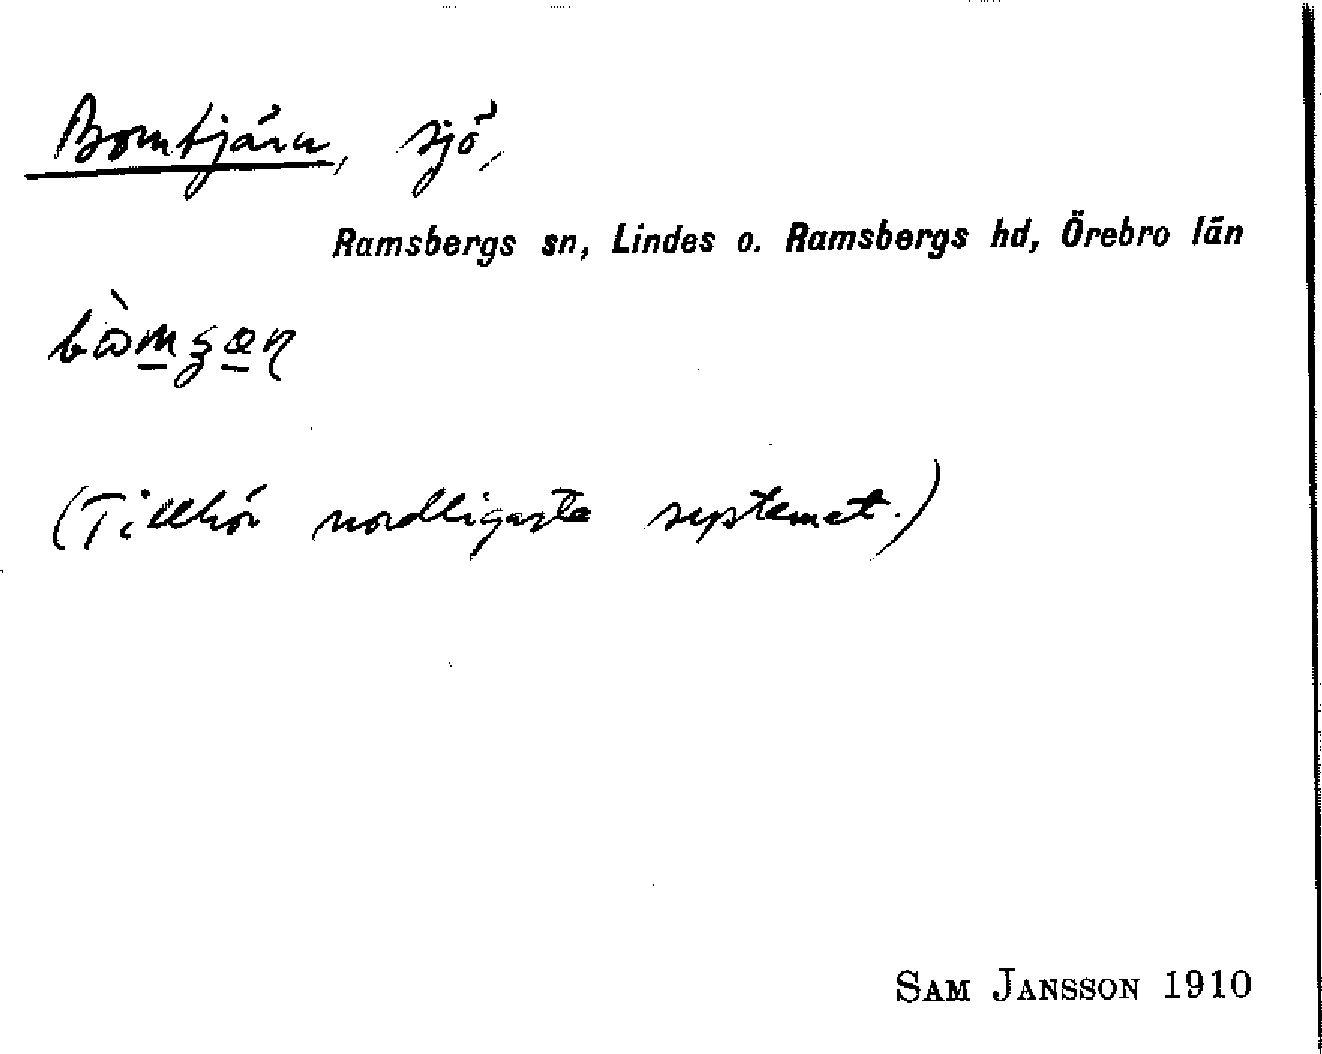 Bomtjärn, sjö,
Ramsbergs sn, Lindes o. Ramsbergs hd, Örebro län
(Tillhör nordligaste systemet.)
SAM JANSSON 1910